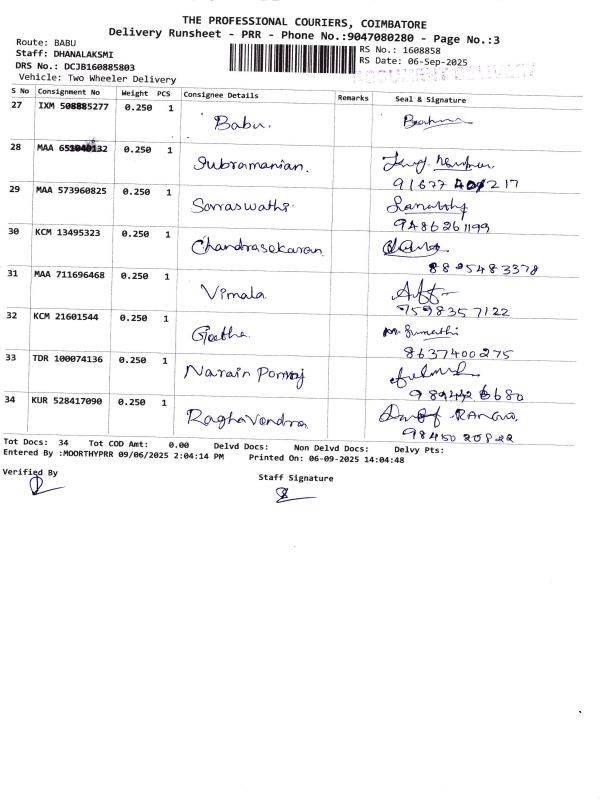 THE PROFESSIONAL COURIERS, COIMBATORE
Delivery Runsheet - PRR - Phone No.:9047080280 - Page No.:3
Route: BABU
Staff: DHANALAKSMI
DRS No.: DCJB160885803
Vehicle: Two Wheeler Delivery
RS No.: 1608858
RS Date: 06-Sep-2025
DOCUMENT DELIVERY
S No Consignment No Weight PCS Consignee Details Remarks Seal & Signature
27 IXM 508885277 0.250 1 Babu.
28 MAA 651040132 0.250 1 Subramanian.
91677 217
29 MAA 573960825 0.250 1 Sarraswathi.
9486261199
30 KCM 13495323 0.250 1 Chandrasekaran.
8825483378
31 MAA 711696468 0.250 1 Vimala.
7598357122
32 KCM 21601544 0.250 1 Geetha. M. Sumathi
8637400275
33 TDR 100074136 0.250 1 Narain
34 KUR 528417090 0.250 1 Raghavendra.
98450 20822
Tot Docs: 34 Tot COD Amt: 0.00 Delvd Docs: Non Delvd Docs: Delvy Pts:
Entered By :MOORTHYPRR 09/06/2025 2:04:14 PM Printed On: 06-09-2025 14:04:48
Verified By
Staff Signature